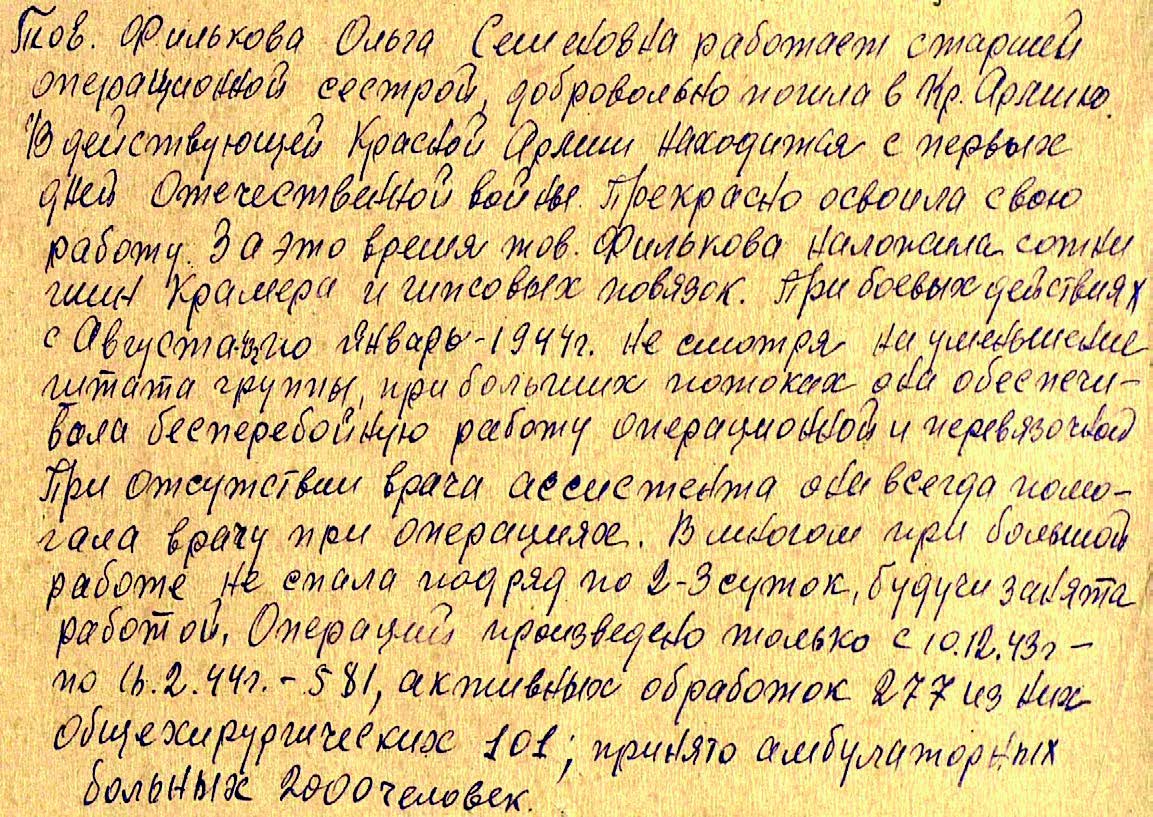 Тов. Филькова Ольга Семеновна работает старшей
операционной сестрой, добровольно пошла в Кр. Армию.
В действующей Красной Армии находится с первых
дней Отечественной войны. Прекрасно освоила свою
работу. За это время тов. Филькова наложила сотни
шин Крамера и гипсовых повязок. При боевых действиях
с Августа по Январь-1944г. не смотря на уменьшение
штата группы, при больших потоках она обеспечи-
вала бесперебойную работу операционной и перевязочной
При отсутствии врача ассистента она всегда помо-
гала врачу при операциях. В многом при большой
работе не спала подряд по 2-3 суток, будучи занята
работой. Операций произведено только с 10.12.43г -
по 2.44г. - 581, активных обработок 277 из них
общехирургических 101; принято амбулаторных
больных 2000 человек.